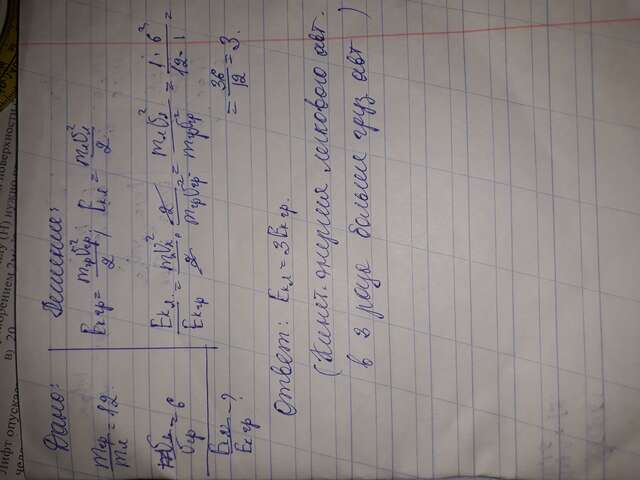 Дано:
mгр/mл = 12
υл/υгр = 6
Eкл/Eкгр - ?
Решение:
Eкгр = mгрυгр²/2, Eкл = mлυл²/2
Eкл/Eкгр = mлυл²/2 · 2/mгрυгр² = mлυл²/mгрυгр² = 1·6²/12·1 =
= 36/12 = 3.
Ответ: Eкл = 3Eкгр.
(Кинет. энергия легкового авт.
в 3 раза больше груз авт)
Лифт опуска
в) 20